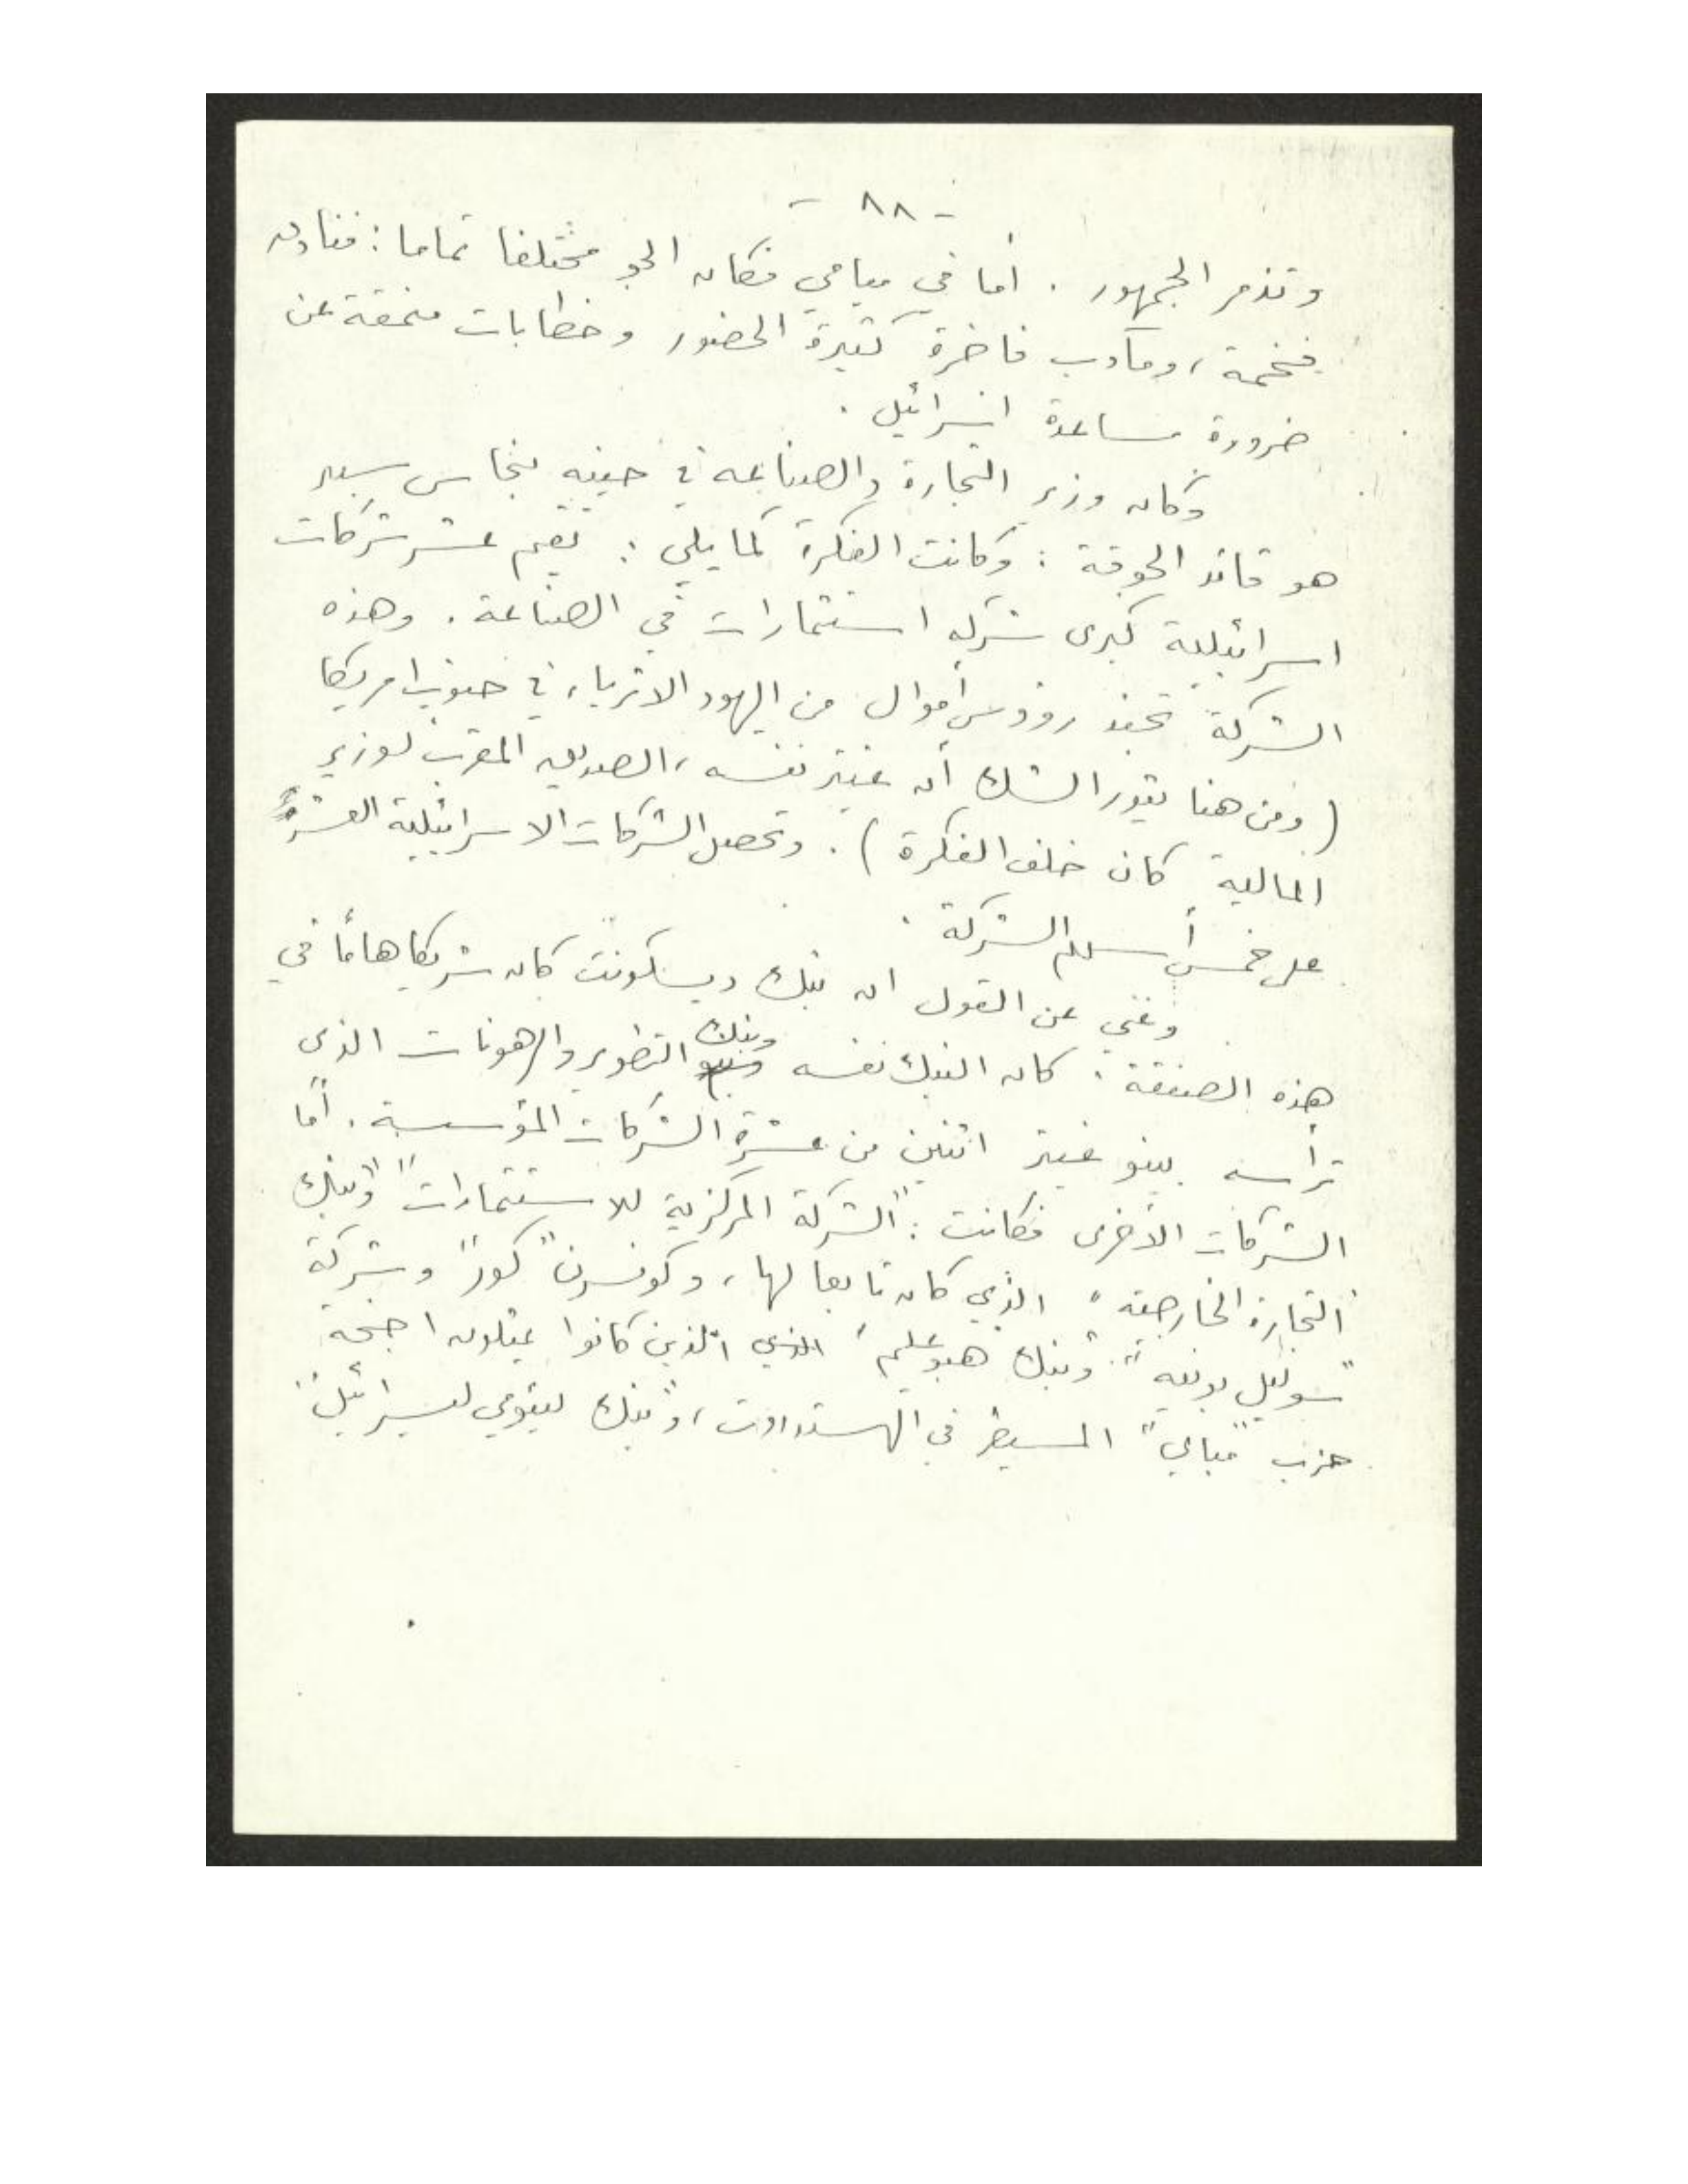 - ٨٨ -
وتذمر الجمهور . أما في ميامي فكان الجو مختلفا تماما : فنادق
فخمة ، ومآدب فاخرة كثيرة الحضور وخطابات منمقة عن
ضرورة مساعدة اسرائيل .
وكان وزير التجارة والصناعه في حينه بنحاس سبير
هو قائد الجوقة : وكانت الفكرة كما يلي : تقيم عشر شركات
اسرائيلية كبرى شركه استثمارات في الصناعة . وهذه
الشركة تجند رؤوس أموال من اليهود الاثرياء في جنوب امريكا
( ومن هنا يثور الشك أن غيتر نفسه ، الصديق المقرب لوزير
المالية كان خلف الفكرة ) . وتحصل الشركات الاسرائيلية العشر
على خمس أسهم الشركة .
وغني عن القول ان بنك ديسكونت كان شريكا هامًا في
هذه الصفقة : كان البنك نفسه وبنك التطوير والرهونات الذى
ترأسه بينو غيتر اثنين من عشرة الشركات المؤسسة . أما
الشركات الأخرى فكانت : "الشركة المركزية للاستثمارات" و"بنك
التجارة الخارجية" الذي كان تابعا لها ، وكونسرن "كور" وشركة
"سوليل بونيه" وبنك "هبوعليم" الذين كانوا يمثلون اجنحة
حزب "مباي" المسيطر في الهستدروت ، و"بنك ليئومي ليسرائيل"